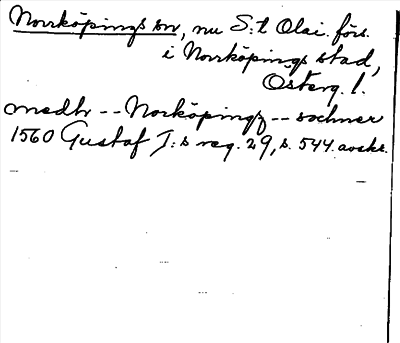 Norrköpings sn, nu S:t Olai förs.
i Norrköpings stad,
Österg. l.
medh -- Norköpingz -- sochner
1560 Gustaf I:s reg. 29, s. 544. avskr.